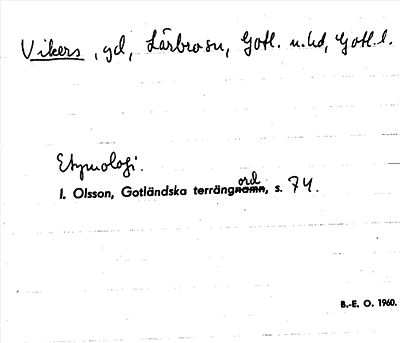 Vikers, gd, Lärbro sn, Gotl. n. hd, Gotl. l.
Etymologi.
I. Olsson, Gotländska terrängord, s. 74.
B.-E. O. 1960.